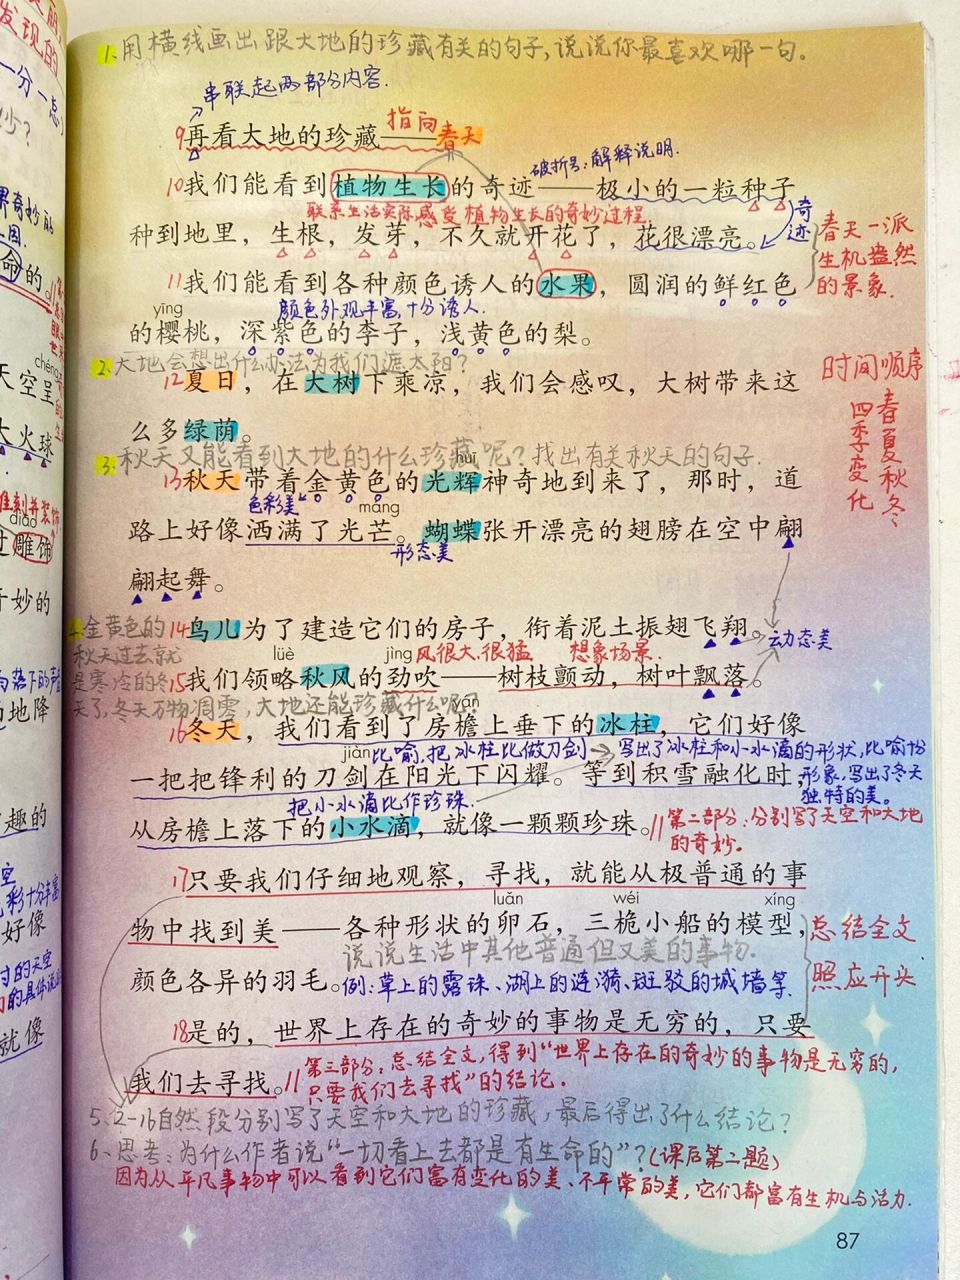 1.用横线画出跟大地的珍藏有关的句子,说说你最喜欢哪一句。
串联起两部分内容.
9再看大地的珍藏——指向春天
破折号:解释说明.
10我们能看到植物生长的奇迹——极小的一粒种子
联系生活实际,感受植物生长的奇妙过程.
奇迹
种到地里，生根，发芽，不久就开花了，花很漂亮。
春天一派
生机盎然
的景象.
11我们能看到各种颜色诱人的水果，圆润的鲜红色
yīng
颜色外观丰富,十分诱人.
的樱桃，深紫色的李子，浅黄色的梨。
2.大地会想出什么办法为我们遮太阳?
12夏日，在大树下乘凉，我们会感叹，大树带来这
时间顺序
春夏秋冬
四季变化
么多绿荫。
3.秋天又能看到大地的什么珍藏呢?找出有关秋天的句子.
huī
13秋天带着金黄色的光辉神奇地到来了，那时，道
色彩美
máng
路上好像洒满了光芒。蝴蝶张开漂亮的翅膀在空中翩
形态美
翩起舞。
4.金黄色的
秋天过去就
是寒冷的冬
天了,冬天万物凋零,大地还能珍藏什么呢?
14鸟儿为了建造它们的房子，衔着泥土振翅飞翔。
动态美
lüè
jìng
风很大.很猛.
想象场景.
15我们领略秋风的劲吹——树枝颤动，树叶飘落。
yán
16冬天，我们看到了房檐上垂下的冰柱，它们好像
jiàn
比喻,把冰柱比做刀剑
写出了冰柱和小水滴的形状,比喻十分
形象,写出了冬天
独特的美。
一把把锋利的刀剑在阳光下闪耀。等到积雪融化时，
把小水滴比作珍珠.
从房檐上落下的小水滴，就像一颗颗珍珠。
//第二部分:分别写了天空和大地
的奇妙.
17只要我们仔细地观察，寻找，就能从极普通的事
luǎn
wéi
xíng
物中找到美——各种形状的卵石，三桅小船的模型，
总结全文
照应开头
说说生活中其他普通但又美的事物.
颜色各异的羽毛。
例:草上的露珠、湖上的涟漪、斑驳的城墙等.
18是的，世界上存在的奇妙的事物是无穷的，只要
我们去寻找。
//第三部分:总结全文,得到“世界上存在的奇妙的事物是无穷的,
只要我们去寻找”的结论.
5、2-16自然段分别写了天空和大地的珍藏,最后得出了什么结论?
6、思考:为什么作者说“一切看上去都是有生命的”?(课后第二题)
因为从平凡事物中可以看到它们富有变化的美、不平常的美,它们都富有生机与活力.
87